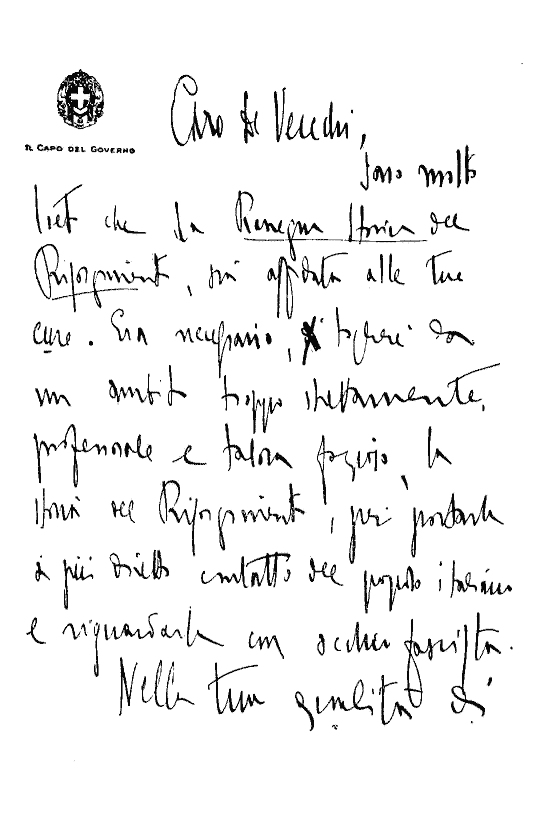 IL CAPO DEL GOVERNO
Caro De Vecchi,
sono molto
lieto che la Rassegna Storica del
Risorgimento, sia affidata alle tue
cure. Era necessario, togliere da
un ambito troppo strettamente
professorale e talora fazioso, la
storia del Risorgimento, per portarla
a più diretto contatto del popolo italiano
e riguardarla con occhio fascista.
Nella tua qualità di